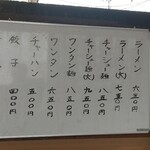 ラーメン 六五〇
ラーメン(大) 七五〇
チャーシュー麺 八五〇
チャーシュー麺(大) 九五〇
ワンタン麺 八五〇
ワンタン 六五〇
チャーハン 五〇〇
餃子 四〇〇